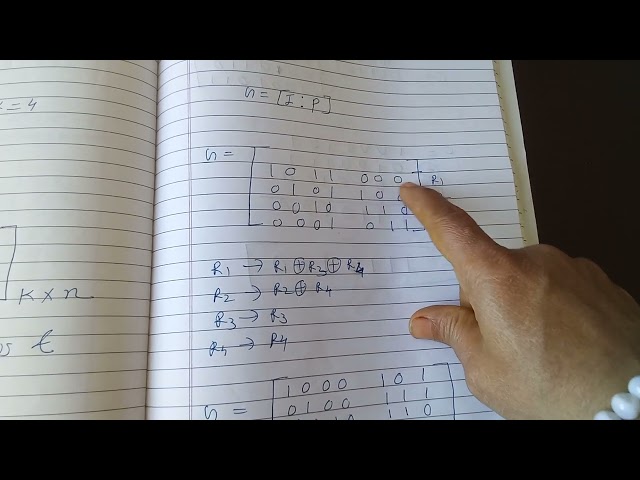 =4
K x n
t
G = [I : P]
G =
1 0 1 1 0 0 0 R1
0 1 0 1 1 0
0 0 1 0 1 1 0
0 0 0 1 0 1 1
R1 → R1 ⊕ R3 ⊕ R4
R2 → R2 ⊕ R4
R3 → R3
R4 → R4
G =
1 0 0 0 1 0 1
0 1 0 0 1 1 1
1 0 1 1 0